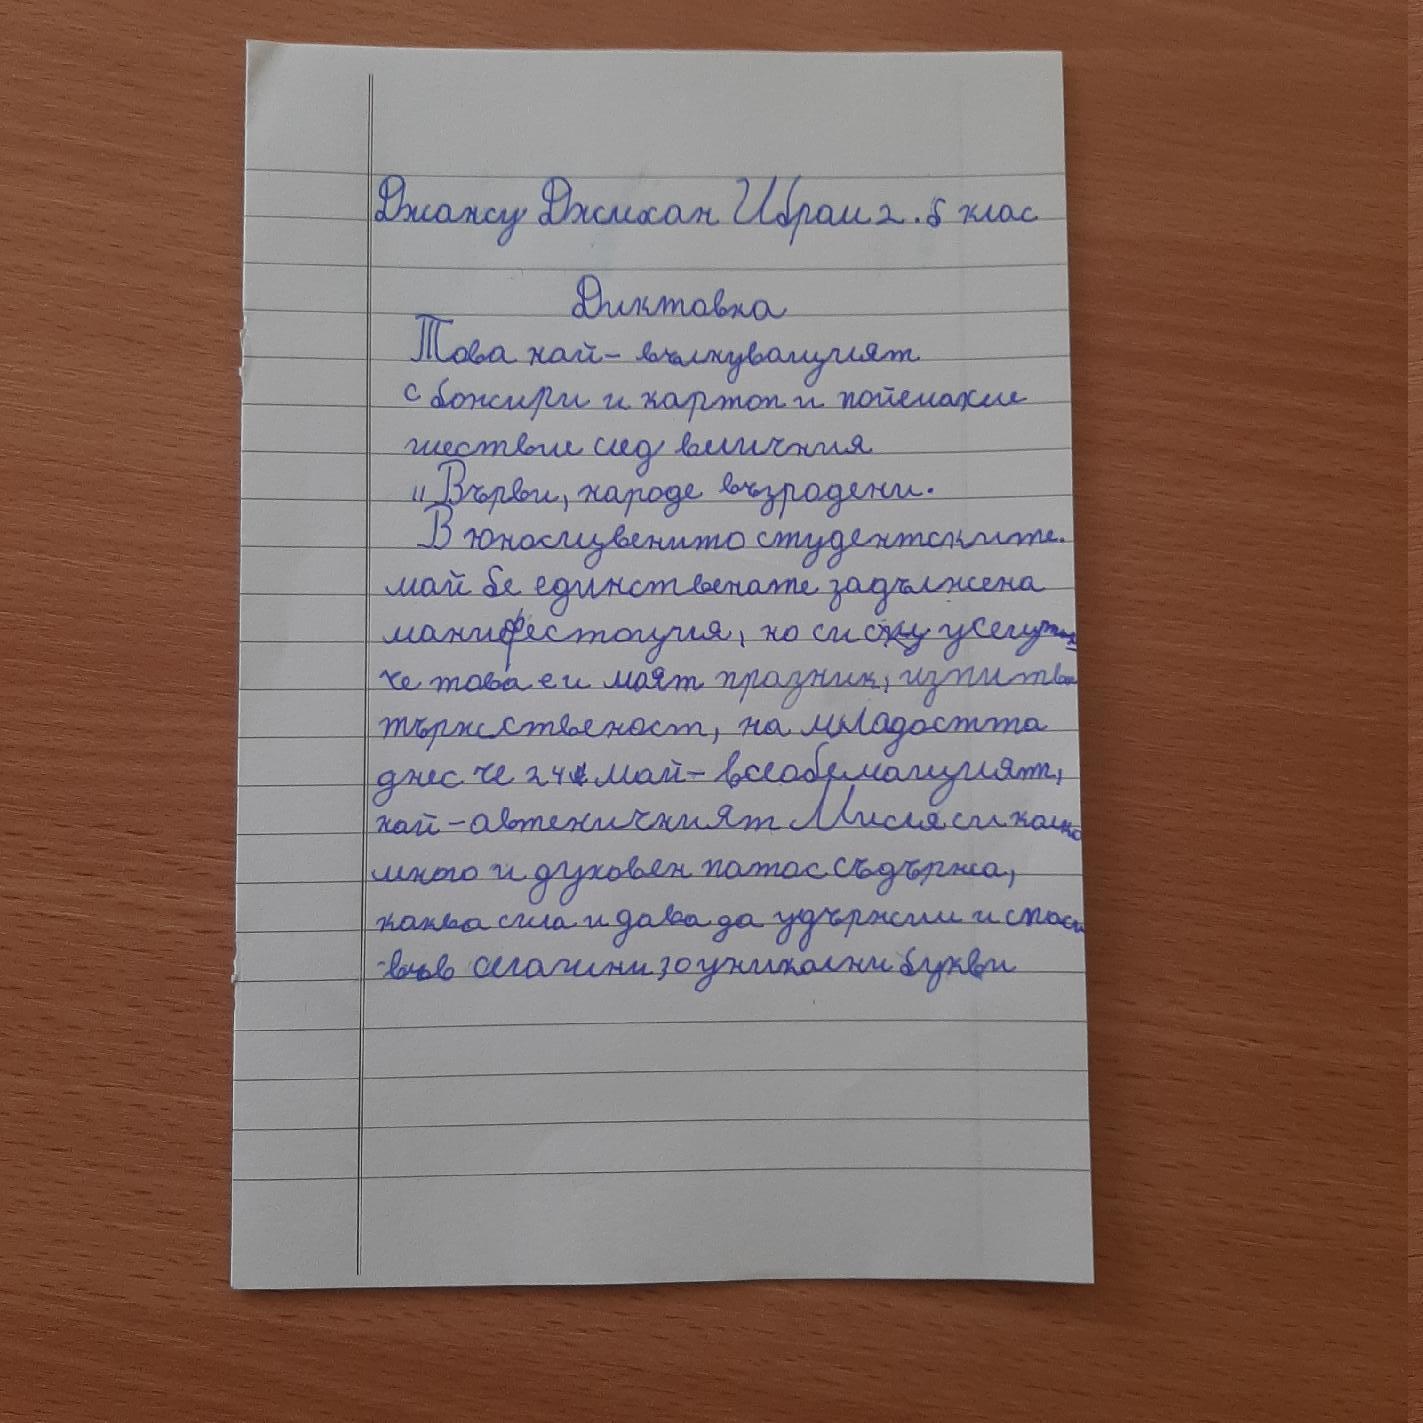 Джансу Джихан Ибраи 2. б клас
Диктовка
Това най - вълнуващият
с божири и картоп и пойемахме
шествие след величния
"Върви, народе възродени.
В юносщвенито студентските.
май бе единствената задължена
манифестоция, но си
че това е и моят празник, изпитва
тържствяност, на младостта
днес че 24 май - всеобемащият,
най - автеничният Мисля си колко
много и духовен патос съдържа,
каква сила и дава да удържим и спаси
уникални букви